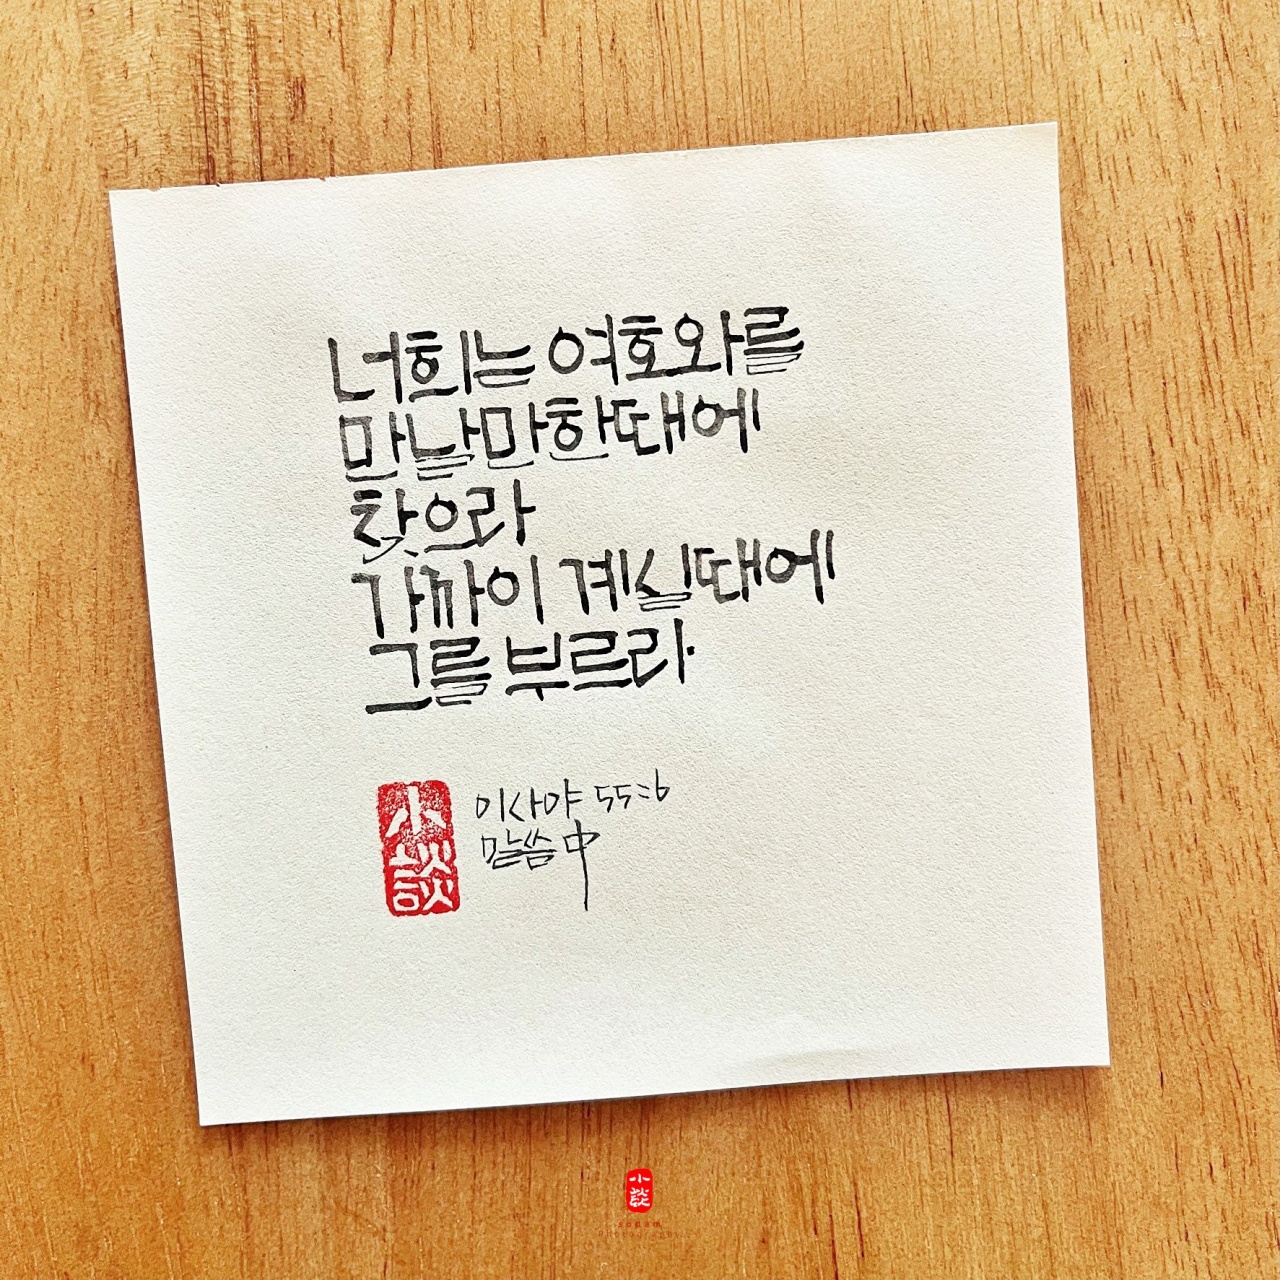 너희는 여호와를
만날만한때에
찾으라
가까이 계실때에
그를 부르라
小談
이사야 55:6
말씀 中
小談
sodam
photography